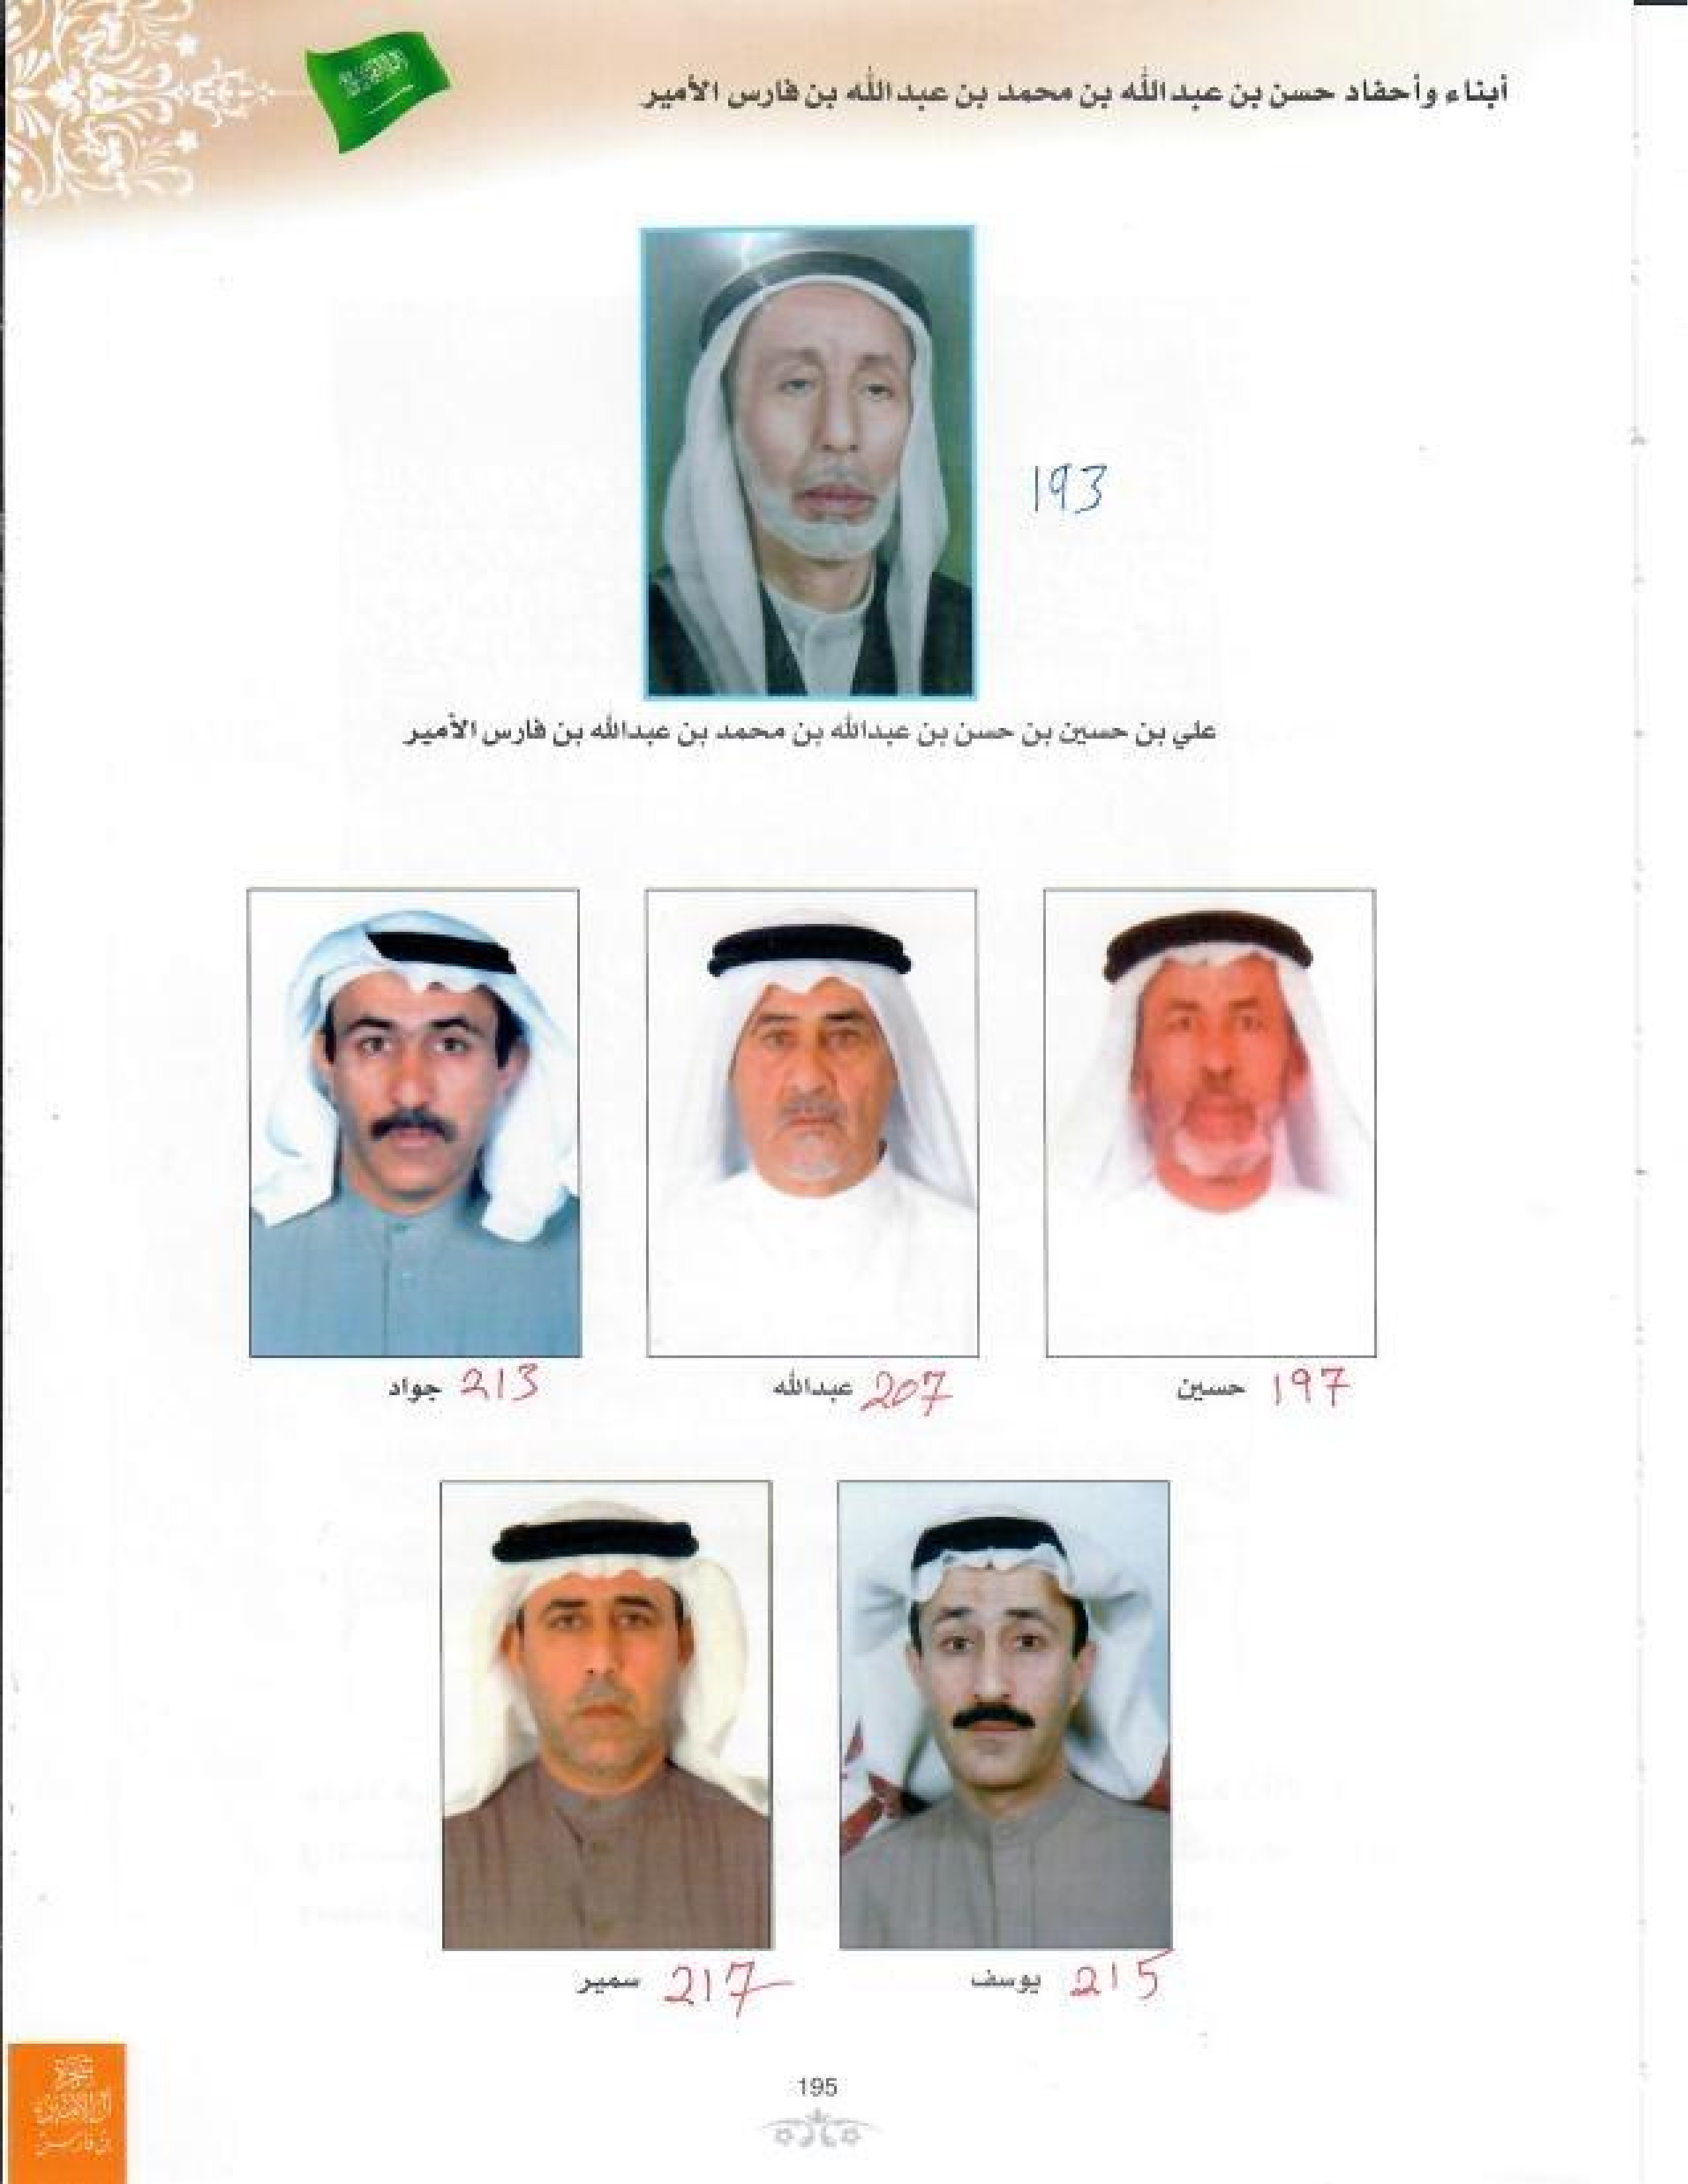 أبناء وأحفاد حسن بن عبدالله بن محمد بن عبدالله بن فارس الأمير
193
علي بن حسين بن حسن بن عبدالله بن محمد بن عبدالله بن فارس الأمير
197 حسين
207 عبدالله
213 جواد
215 يوسف
217 سمير
شجرة
بن فارس
195